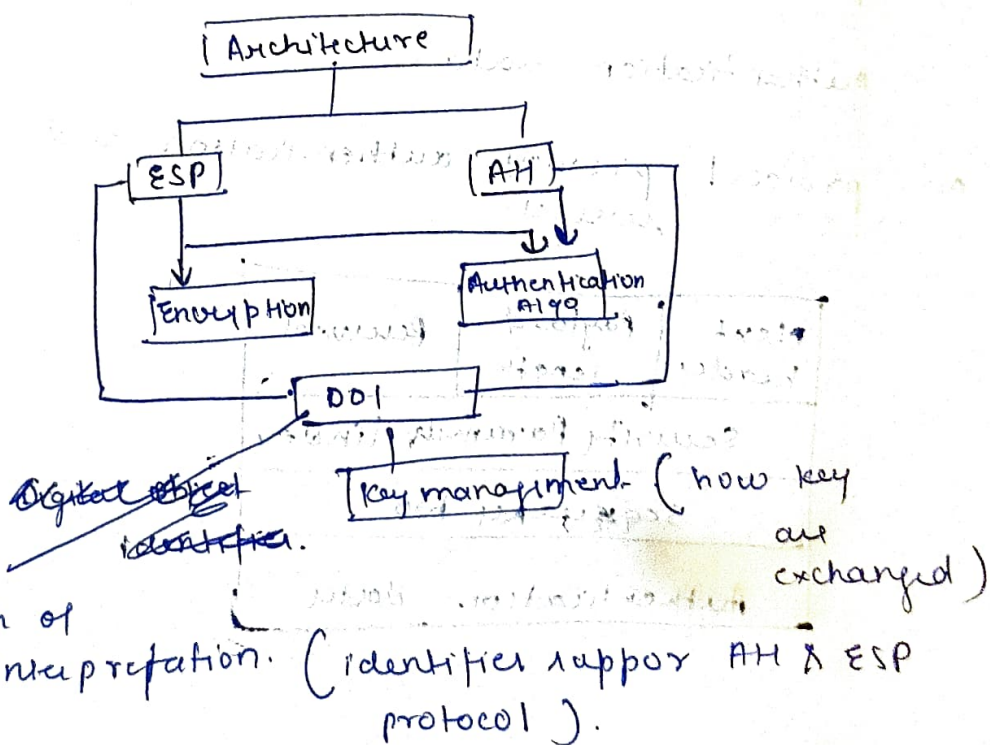 Architecture
ESP AH
Encryption Authentication
Algo
DOI
Digital object
identifier.
Key management (how key
are
exchanged)
n of
nterpretation. (identifier suppor AH & ESP
protocol).